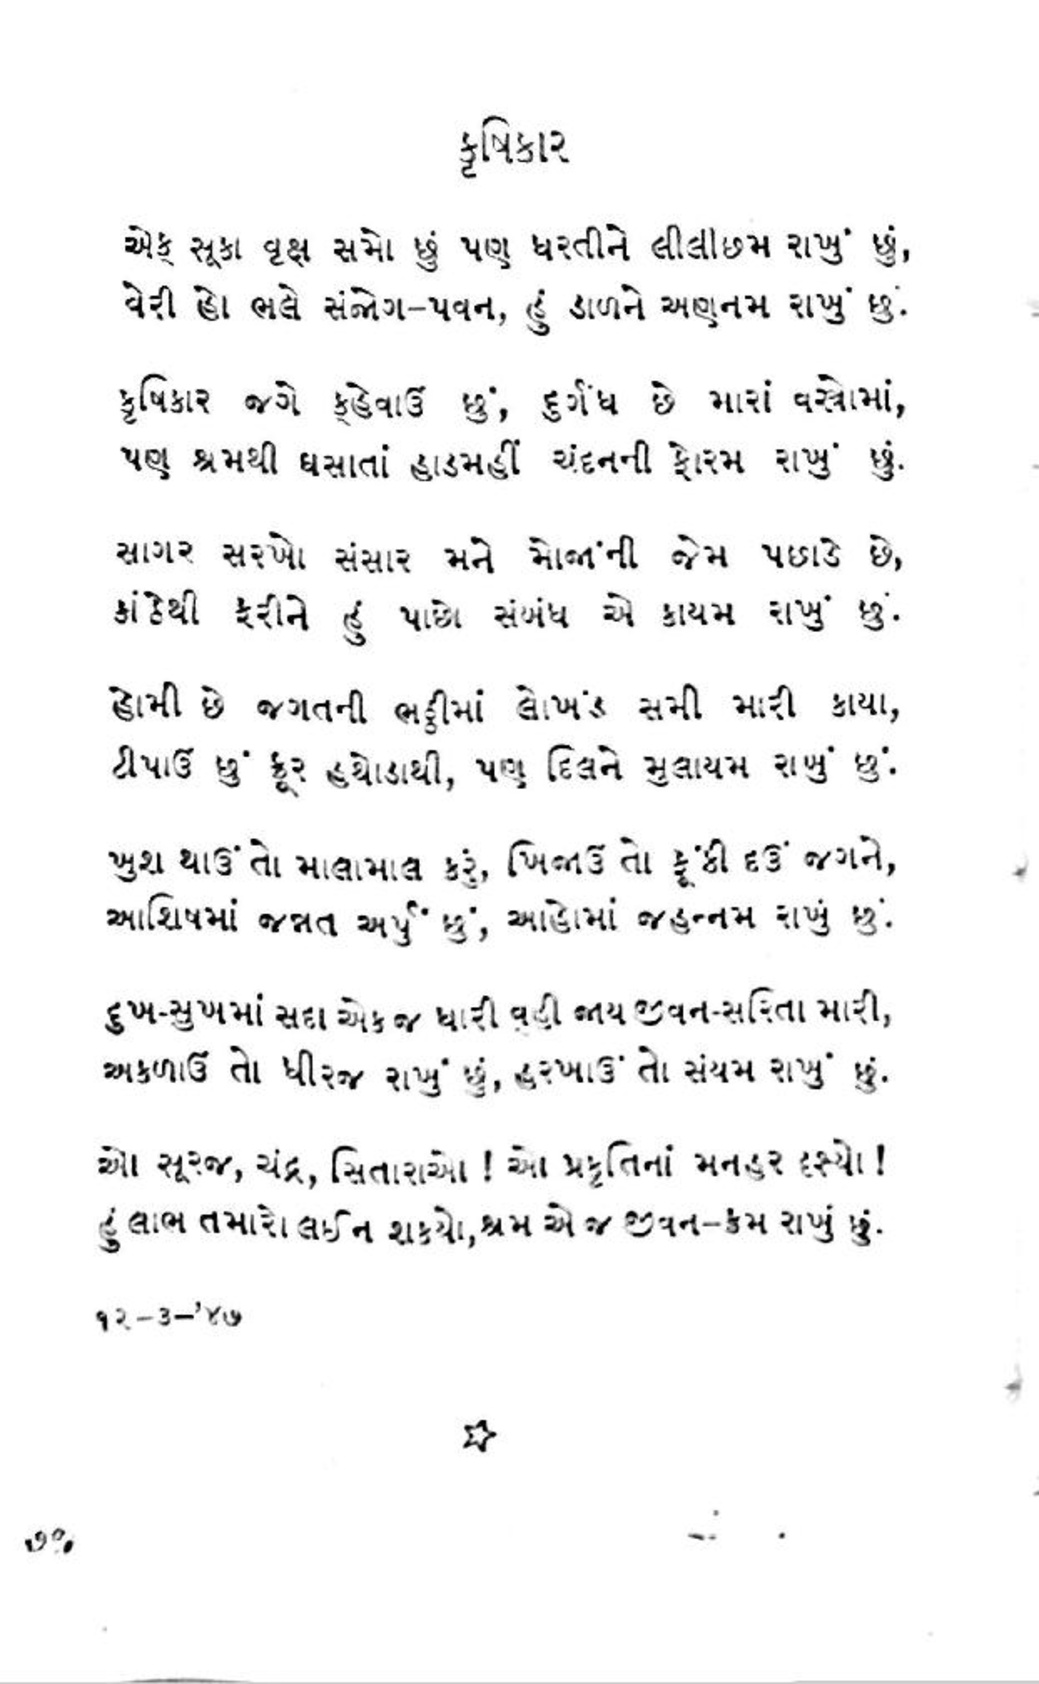 કૃષિકાર
એક સૂકા વૃક્ષ સમો છું પણ ધરતીને લીલીછમ રાખું છું,
વેરી હો ભલે સંજોગ–પવન, હું ડાળને અણનમ રાખું છું.
કૃષિકાર જગે ક્‌હેવાઉં છું, દુર્ગંધ છે મારાં વસ્ત્રોમાં,
પણ શ્રમથી ઘસાતાં હાડમહીં ચંદનની ફોરમ રાખું છું.
સાગર સરખો સંસાર મને મોજાંની જેમ પછાડે છે,
કાંઠેથી ફરીને હું પાછો સંબંધ એ કાયમ રાખું છું.
હોમી છે જગતની ભઠ્ઠીમાં લોખંડ સમી મારી કાયા,
ટીપાઉં છું ક્રૂર હથોડાથી, પણ દિલને મુલાયમ રાખું છું.
ખુશ થાઉં તો માલામાલ કરું, ખિજાઉં તો ફૂંકી દઉં જગને,
આશિષમાં જન્નત અર્પું છું, આહોમાં જહન્નમ રાખું છું.
દુખ-સુખમાં સદા એક જ ધારી વહી જાય જીવન-સરિતા મારી,
અકળાઉં તો ધીરજ રાખું છું, હરખાઉં તો સંયમ રાખું છું.
ઓ સૂરજ, ચંદ્ર, સિતારાઓ ! ઓ પ્રકૃતિનાં મનહર દૃશ્યો !
હું લાભ તમારો લઈ ન શકયો, શ્રમ એ જ જીવન–ક્રમ રાખું છું.
૧૨–૩–'૪૭